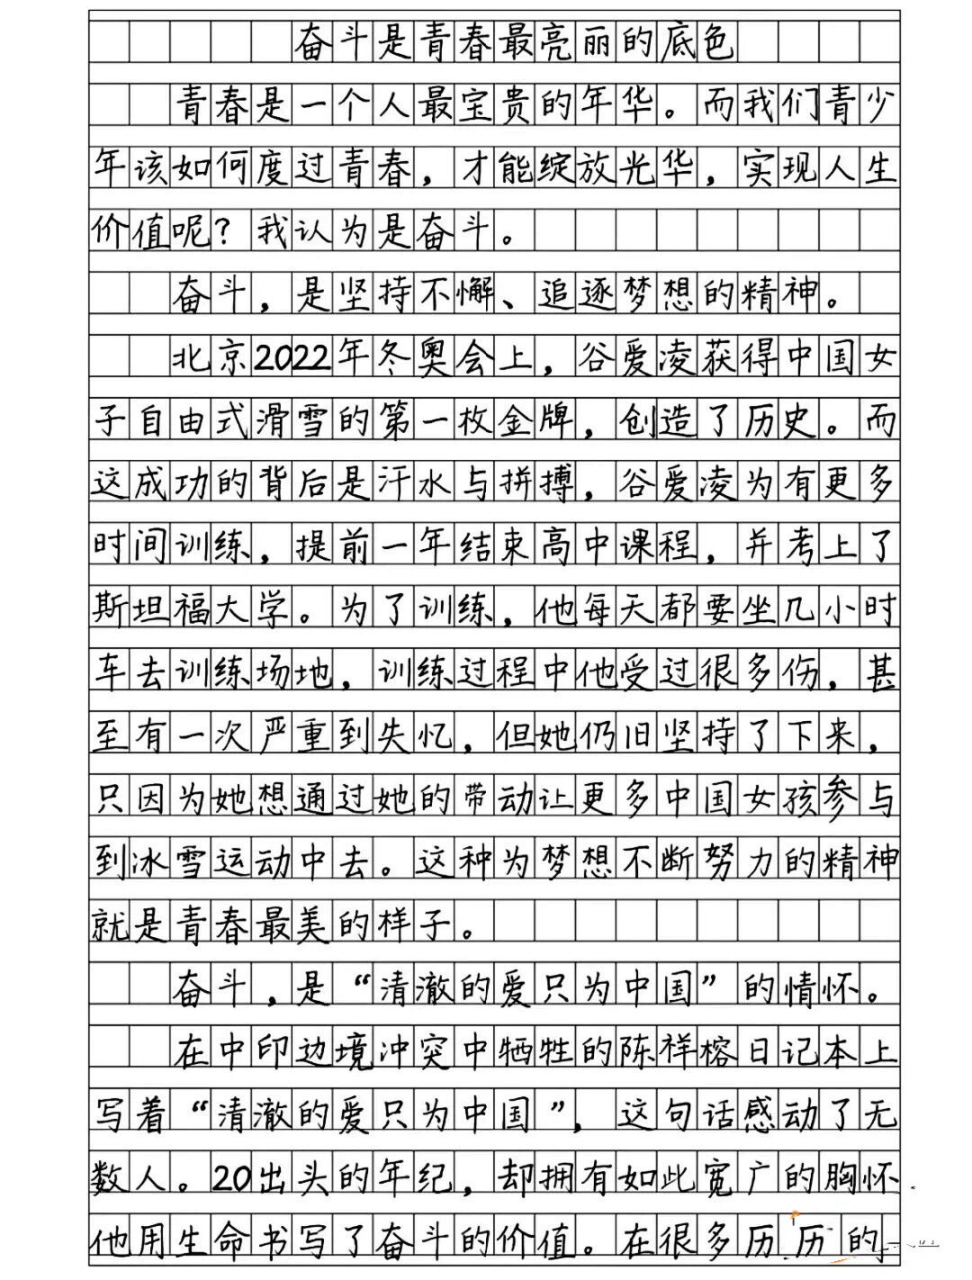 奋斗是青春最亮丽的底色
青春是一个人最宝贵的年华。而我们青少
年该如何度过青春，才能绽放光华，实现人生
价值呢？我认为是奋斗。
奋斗，是坚持不懈、追逐梦想的精神。
北京2022年冬奥会上，谷爱凌获得中国女
子自由式滑雪的第一枚金牌，创造了历史。而
这成功的背后是汗水与拼搏，谷爱凌为有更多
时间训练，提前一年结束高中课程，并考上了
斯坦福大学。为了训练，他每天都要坐几小时
车去训练场地，训练过程中他受过很多伤，甚
至有一次严重到失忆，但她仍旧坚持了下来，
只因为她想通过她的带动让更多中国女孩参与
到冰雪运动中去。这种为梦想不断努力的精神
就是青春最美的样子。
奋斗，是“清澈的爱只为中国”的情怀。
在中印边境冲突中牺牲的陈祥榕日记本上
写着“清澈的爱只为中国”，这句话感动了无
数人。20出头的年纪，却拥有如此宽广的胸怀
他用生命书写了奋斗的价值。在很多历历的